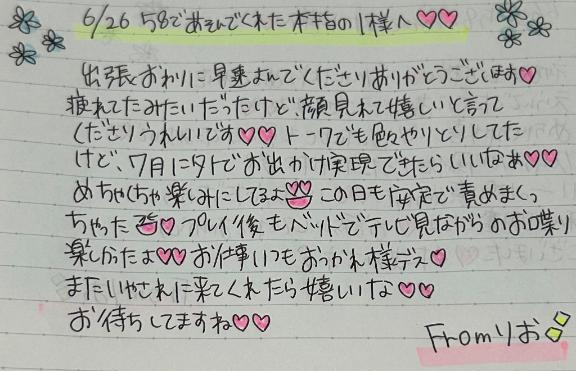 6/26 58であそんでくれた本指のI様へ♡♡
出張おわりに早速よんでくださりありがとうございます♡
疲れてたみたいだったけど、顔見れて嬉しいと言って
くださりうれしいです♡♡ トークでも色々やりとりしてた
けど、7月に外でお出かけ実現できたらいいなぁ♡♡
めちゃくちゃ楽しみにしてるよ この日も安定で責めまくっ
ちゃった ♡ プレイ後もベッドでテレビ見ながらのお喋り
楽しかったよ♡♡ お仕事いつもおつかれ様デス♡
またいやされに来てくれたら嬉しいな♡♡
お待ちしてますね♡♡
Fromりお